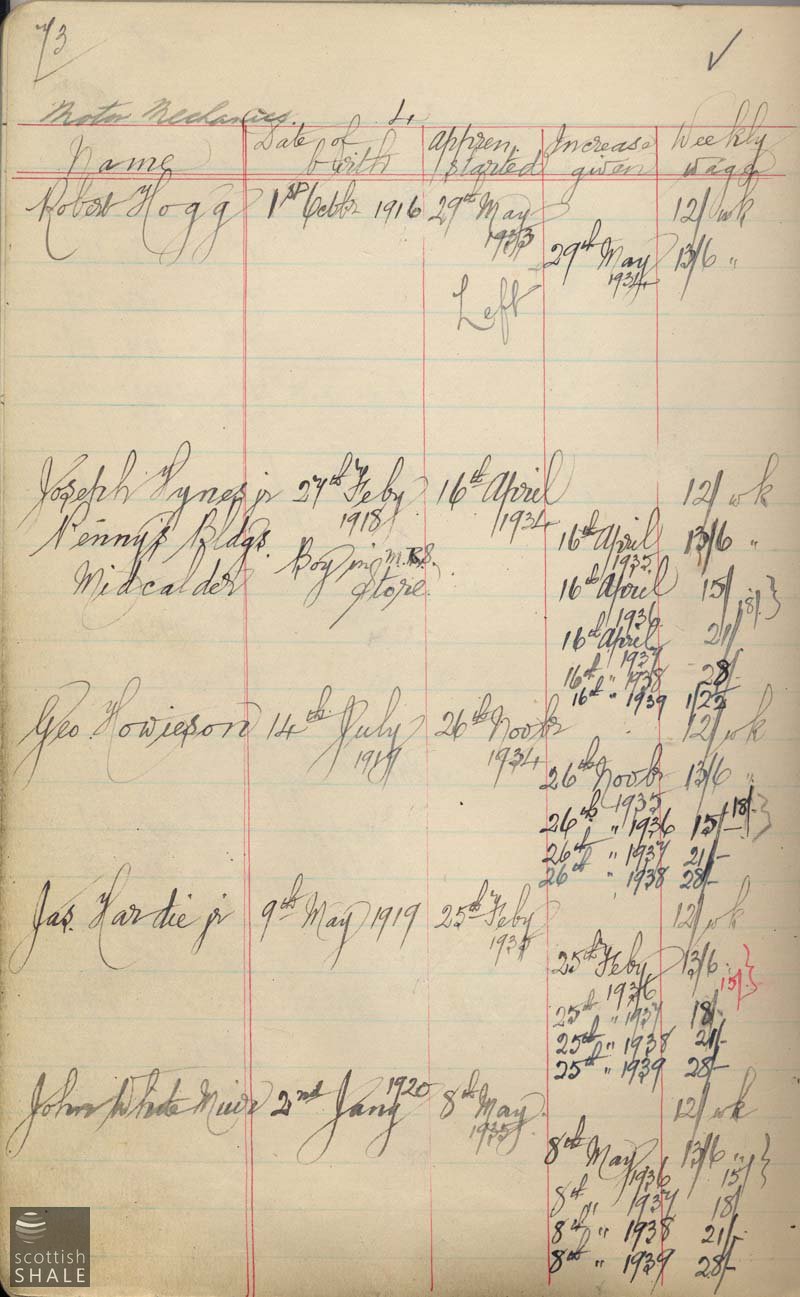 73 ✓
Motor Mechanics. 4
Name Date of birth Appren. started Increase given Weekly wage
Robert Hogg 1st Octbr 1916 29th May 1933 12/ wk
29th May 1934 13/6 "
Left
Joseph Hynes jr 27th Feby 1918 16th April 1934 12/ wk
Nenny's Bldgs. 16th April 1935 13/6 "
Midcalder Boy in M.R.S. Store. 16th April 1936 15/ 18/- }
16th April 1937 21/
16th " 1938 28/-
16th " 1939 1/22
Geo. Howieson 14th July 1919 26th Novbr 1934 12/ wk
26th Novbr 1935 13/6 "
26th " 1936 15/- 18/- }
26th " 1937 21/-
26th " 1938 28/-
Jas. Hardie jr 9th May 1919 25th Feby 1935 12/ wk
25th Feby 1936 13/6 15/- }
25th " 1937 18/-
25th " 1938 21/-
25th " 1939 28/-
John White Muir 2nd Jany 1920 8th May 1935 12/ wk
8th May 1936 13/6 " 15/ }
8th " 1937 18/
8th " 1938 21/-
8th " 1939 28/-
scottish
SHALE